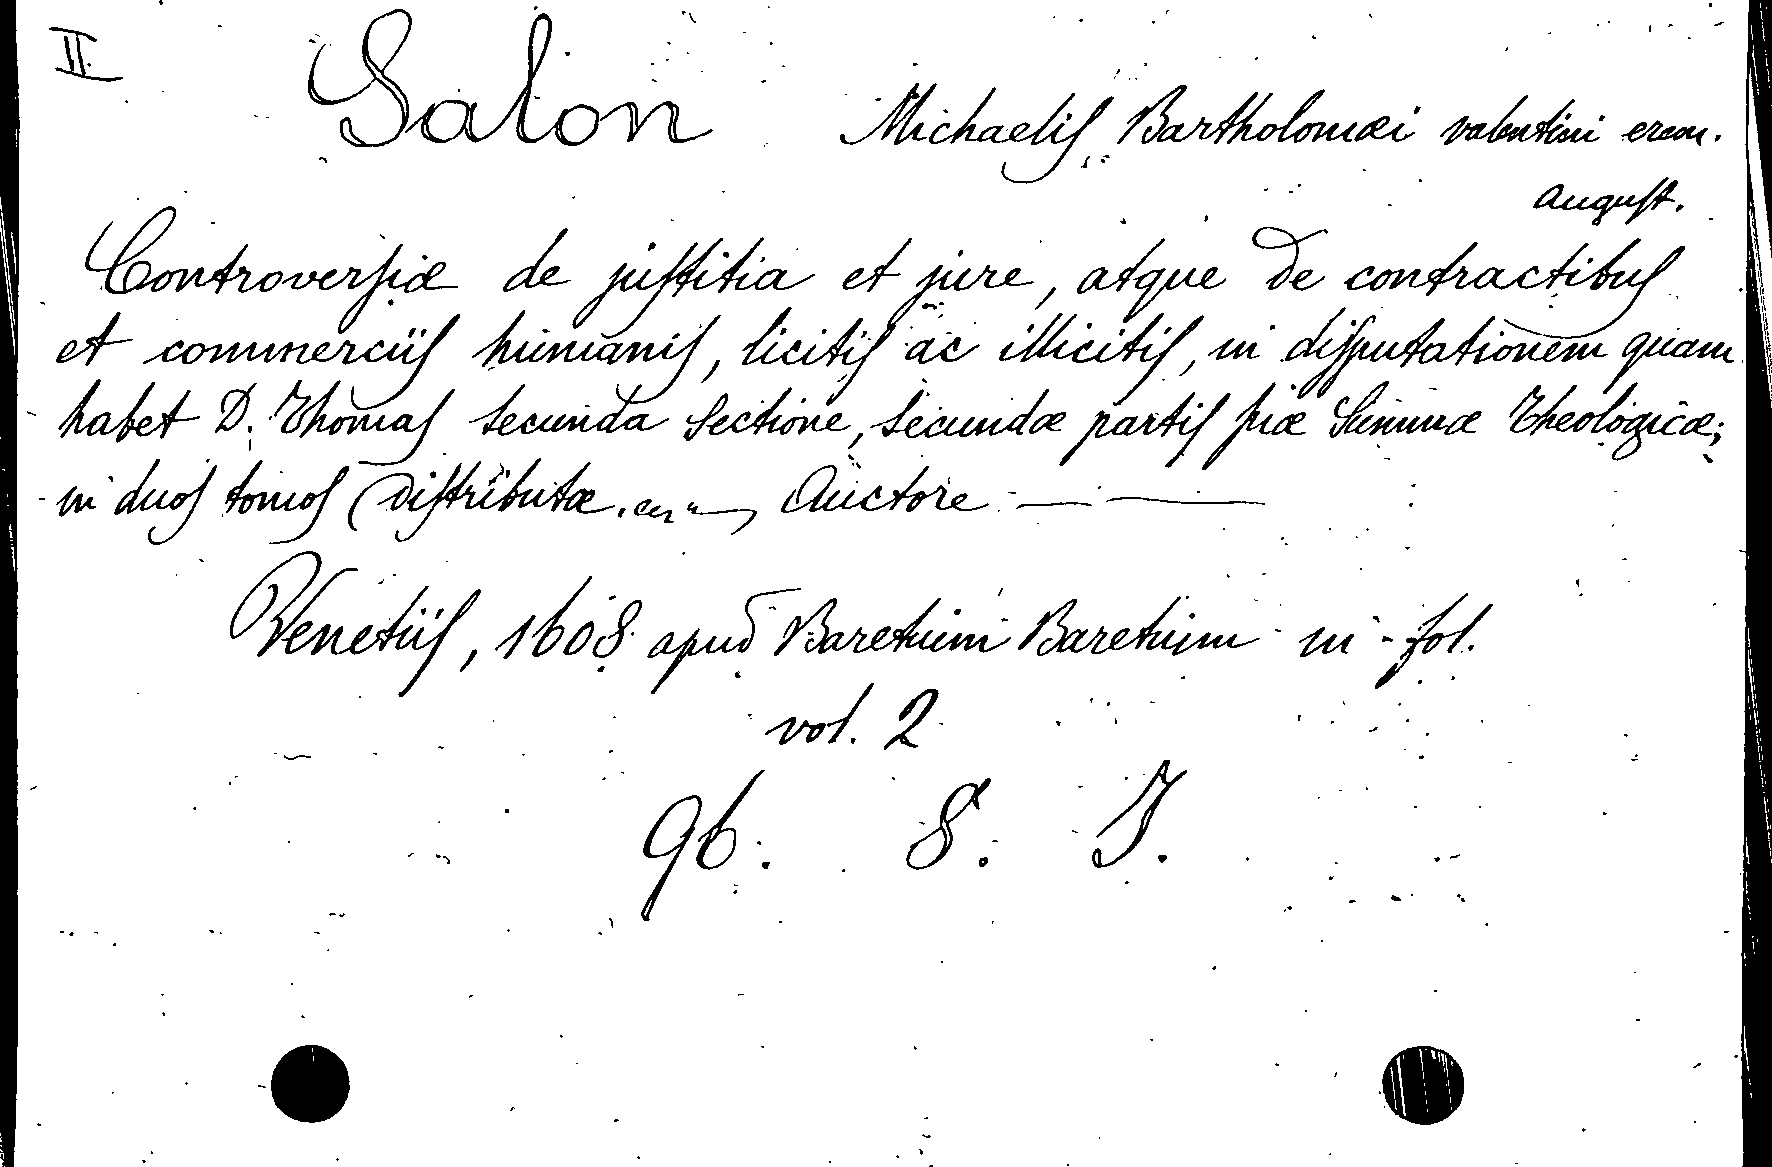 II.
Salon Michaelis Bartholomæi valentini erem.
August.
Controversiæ de justitia et jure, atque de contractibus
et commerciis humanis, licitis ac illicitis, in disputationem quam
habet D. Thomas secunda sectione, secundæ partis suæ Summæ Theologicæ;
in duos tomos distributæ. Auctore — —
Venetiis, 1608 apud Baretium Baretium in-fol.
vol. 2
96. 8. J.